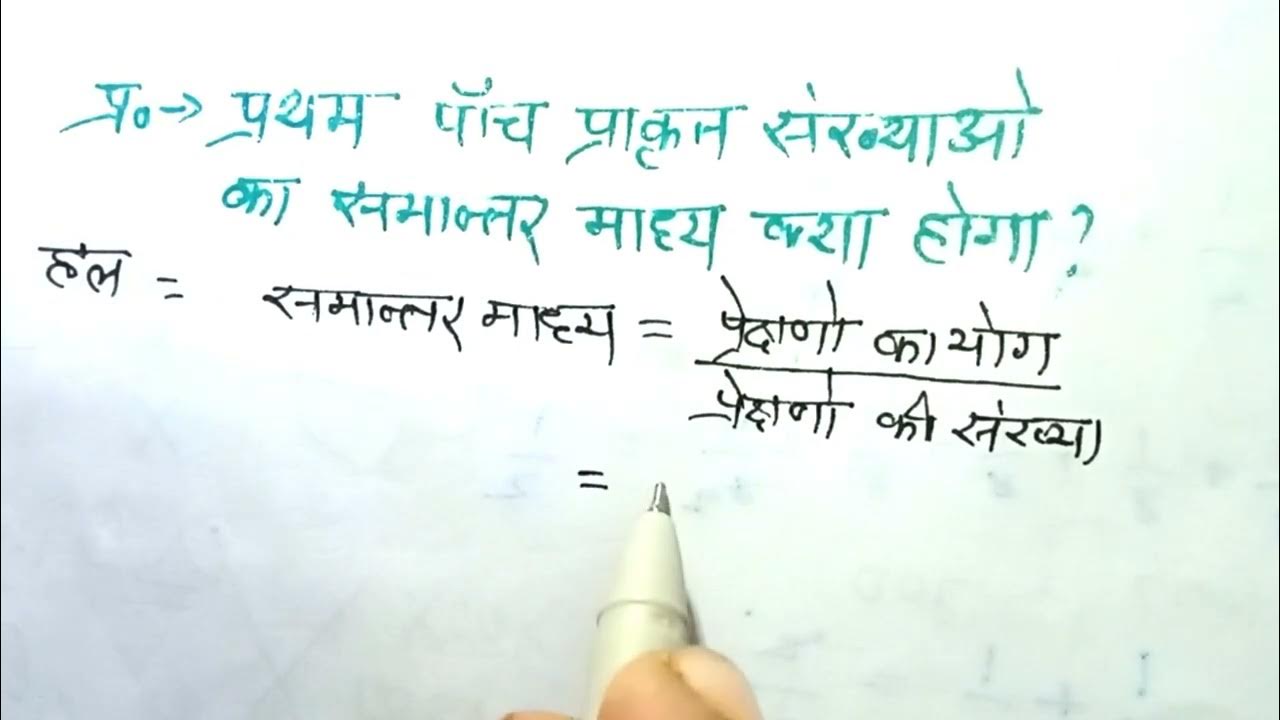 प्र०→ प्रथम पाँच प्राकृत संख्याओ
का समान्तर माध्य क्या होगा?
हल = समान्तर माध्य = प्रेक्षणो का योग
प्रेक्षणो की संख्या
=